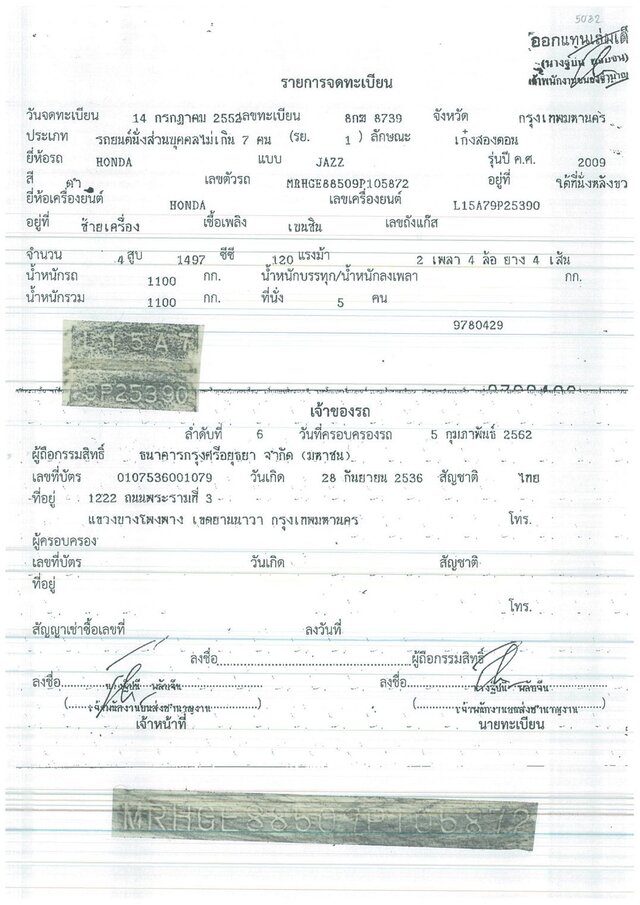 5032
ออกแทนเล่มเดิ
เจ้าพนักงานขนส่งชำนาญ
รายการจดทะเบียน
วันจดทะเบียน 14 กรกฎาคม 2552 เลขทะเบียน 8กฆ 8739 จังหวัด กรุงเทพมหานคร
ประเภท รถยนต์นั่งส่วนบุคคลไม่เกิน 7 คน (รย. 1 ) ลักษณะ เก๋งสองตอน
ยี่ห้อรถ HONDA แบบ JAZZ รุ่นปี ค.ศ. 2009
สี ดำ เลขตัวรถ MRHGE88509P105872 อยู่ที่ ใต้ที่นั่งหลังขว
ยี่ห้อเครื่องยนต์ HONDA เลขเครื่องยนต์ L15A79P25390
อยู่ที่ ซ้ายเครื่อง เชื้อเพลิง เบนซิน เลขถังแก๊ส
จำนวน 4 สูบ 1497 ซีซี 120 แรงม้า 2 เพลา 4 ล้อ ยาง 4 เส้น
น้ำหนักรถ 1100 กก. น้ำหนักบรรทุก/น้ำหนักลงเพลา กก.
น้ำหนักรวม 1100 กก. ที่นั่ง 5 คน
9780429
L15A7
9P25390
เจ้าของรถ
ลำดับที่ 6 วันที่ครอบครองรถ 5 กุมภาพันธ์ 2562
ผู้ถือกรรมสิทธิ์ ธนาคารกรุงศรีอยุธยา จำกัด (มหาชน)
เลขที่บัตร 0107536001079 วันเกิด 28 กันยายน 2536 สัญชาติ ไทย
ที่อยู่ 1222 ถนนพระรามที่ 3
แขวงบางโพงพาง เขตยานนาวา กรุงเทพมหานคร โทร.
ผู้ครอบครอง
เลขที่บัตร วันเกิด สัญชาติ
ที่อยู่
โทร.
สัญญาเช่าซื้อเลขที่ ลงวันที่
ลงชื่อ ผู้ถือกรรมสิทธิ์
ลงชื่อ ลงชื่อ
เจ้าพนักงานขนส่งชำนาญงาน เจ้าพนักงานขนส่งชำนาญงาน
เจ้าหน้าที่ นายทะเบียน
MRHGE88509P105872